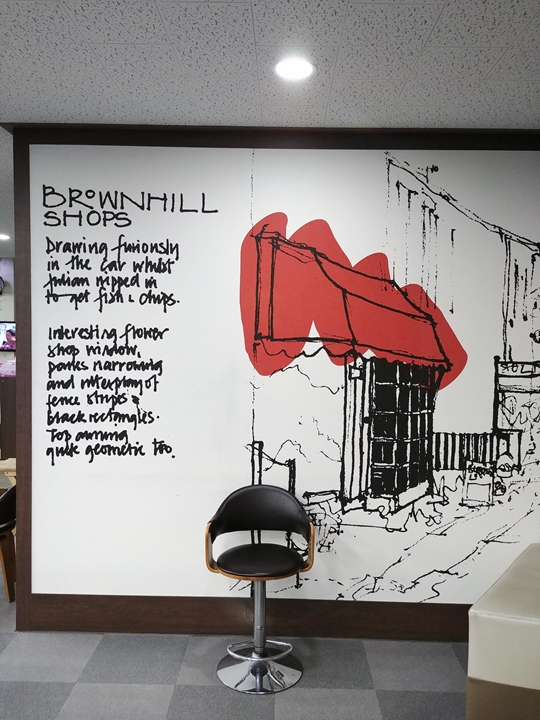 BROWNHILL
SHOPS
Drawing furiously
in the car whilst
Julian nipped in
to get fish & chips.
Interesting flower
shop window,
panes narrowing
and interplay of
fence stripes &
black rectangles.
Top awning
quite geometric too.